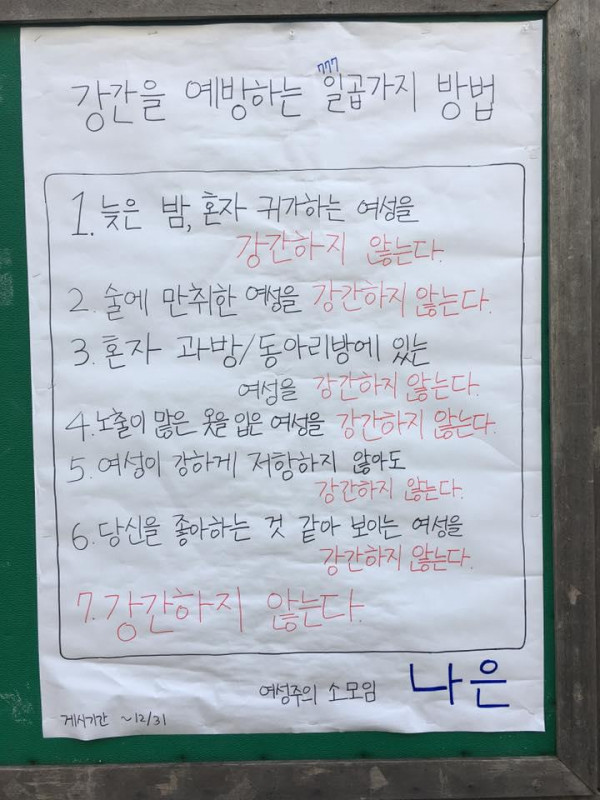 777
강간을 예방하는 일곱가지 방법
1. 늦은 밤, 혼자 귀가하는 여성을
강간하지 않는다.
2. 술에 만취한 여성을 강간하지 않는다.
3. 혼자 과방/동아리방에 있는
여성을 강간하지 않는다.
4. 노출이 많은 옷을 입은 여성을 강간하지 않는다.
5. 여성이 강하게 저항하지 않아도
강간하지 않는다.
6. 당신을 좋아하는 것 같아 보이는 여성을
강간하지 않는다.
7. 강간하지 않는다.
여성주의 소모임 나은
게시기간 ~12/31